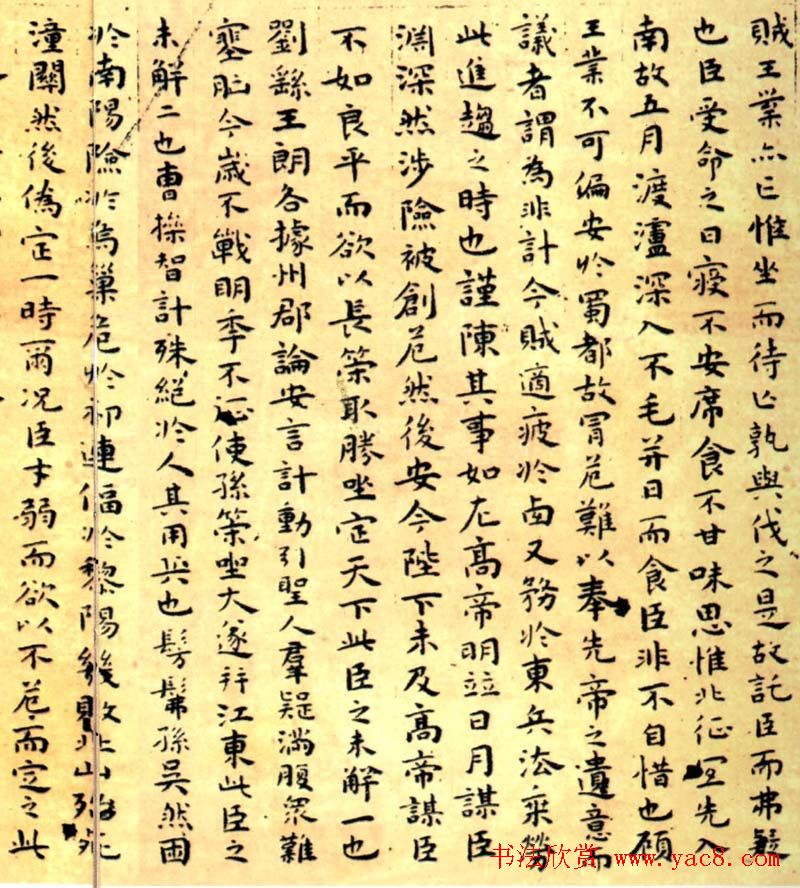 賊王業亦亡惟坐而待亡孰與伐之是故託臣而弗疑
也臣受命之日寢不安席食不甘味思惟北征宜先入
南故五月渡瀘深入不毛并日而食臣非不自惜也顧
王業不可偏安於蜀都故冒危難以奉先帝之遺意而
議者謂為非計今賊適疲於西又務於東兵法乘勞
此進趨之時也謹陳其事如左高帝明並日月謀臣
淵深然涉險被創危然後安今陛下未及高帝謀臣
不如良平而欲以長策取勝坐定天下此臣之未解一也
劉繇王朗各據州郡論安言計動引聖人羣疑滿腹眾難
塞胸今歲不戰明季不征使孫策坐大遂并江東此臣之
未解二也曹操智計殊絕於人其用兵也髣髴孫吳然困
於南陽險於烏巢危於祁連偪於黎陽幾敗北山殆死
潼關然後偽定一時爾況臣才弱而欲以不危而定之此
书法欣赏 www.yac8.com